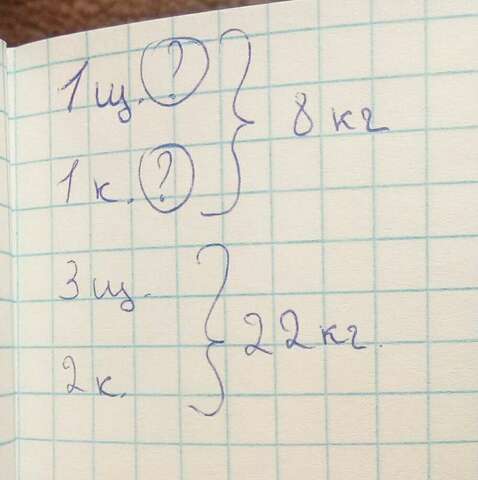 1 щ. ? } 8 кг
1 к. ?
3 щ. } 22 кг.
2 к.